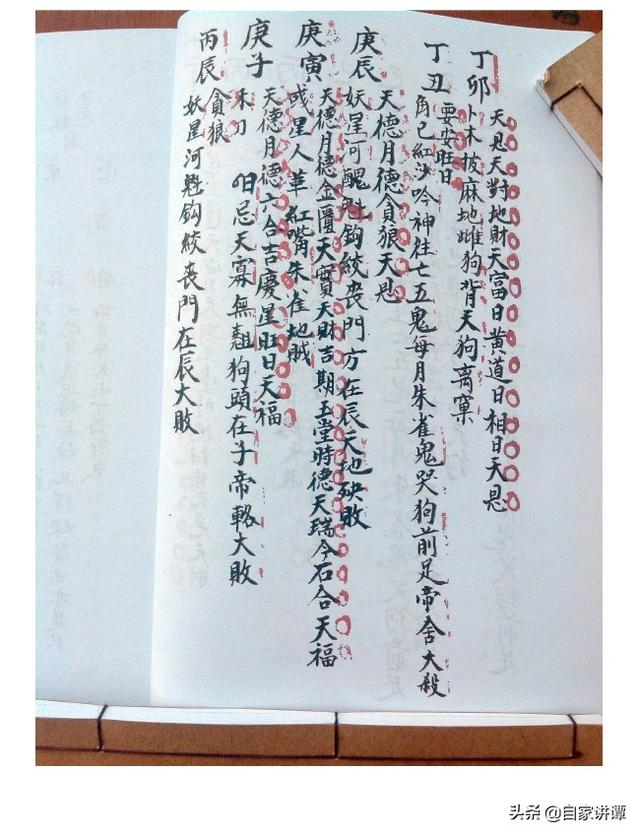 天恩天對地財天富日黃道日相日天恩
丁卯 卜木披麻地雌狗背天狗离窠
要安旺日
丁丑 角己紅沙吟神往亡五鬼每月朱雀鬼哭狗前足帝舍大殺
天德月德貪狼天恩
庚辰 妖星河魁鈎絞喪門方在辰天地殃敗
天德月德金匱天寶天財吉期玉堂時德天瑞今石合天福
庚寅 或星人革紅嘴朱雀地賊
天德月德六合吉慶星旺日天福
庚子 禾刀 忌天寡無翹狗頭在子帝輅大敗
貪狼
丙辰 妖星河魁鈎絞喪門在辰大敗
头条 @自家讲谭